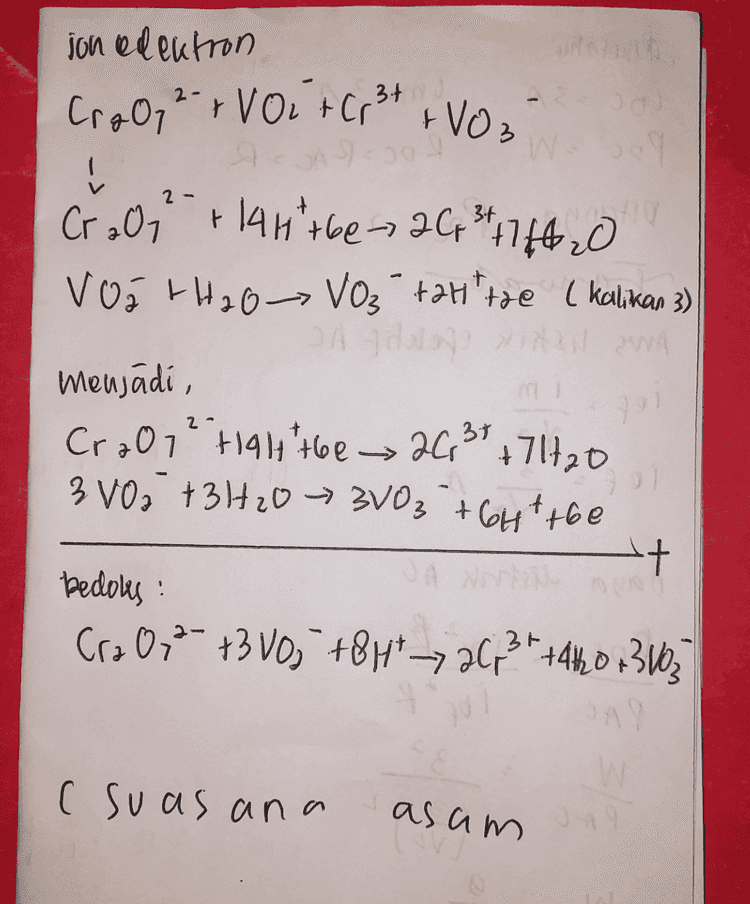 ion elektron
Cr₂O₇²⁻ + VO₂⁻ + Cr³⁺ + VO₃⁻
Cr₂O₇²⁻ + 14H⁺ + 6e → 2Cr³⁺ + 7H₂O
VO₂⁻ + H₂O → VO₃⁻ + 2H⁺ + 2e ( kalikan 3)
menjadi,
Cr₂O₇²⁻ + 14H⁺ + 6e → 2Cr³⁺ + 7H₂O
3VO₂⁻ + 3H₂O → 3VO₃⁻ + 6H⁺ + 6e
+
Redoks :
Cr₂O₇²⁻ + 3VO₂⁻ + 8H⁺ → 2Cr³⁺ + 4H₂O + 3VO₃⁻
( suasana asam